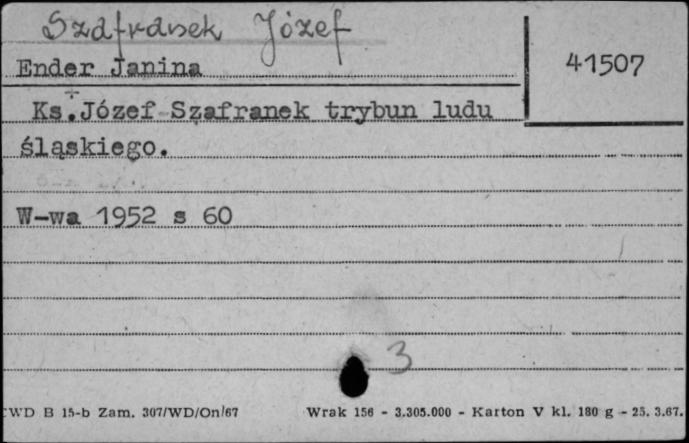 Szafranek Józef
Ender Janina
41507
Ks. Józef Szafranek trybun ludu
śląskiego.
W-wa 1952 s 60
3
WD B 15-b Zam. 307/WD/On/67 Wrak 156 - 3.305.000 - Karton V kl. 180 g - 25. 3.67.